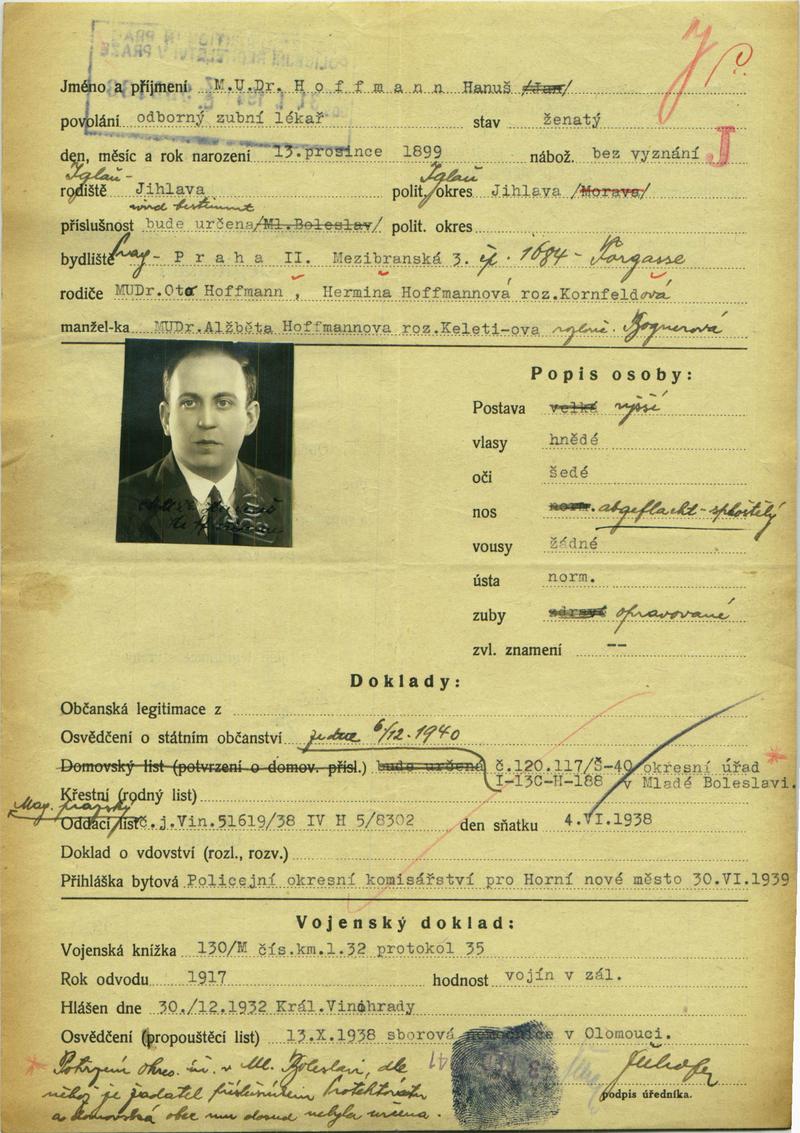 Jméno a příjmení M.U.Dr. H o f f m a n n Hanuš /Jan/
povolání odborný zubní lékař stav ženatý
den, měsíc a rok narození 13.prosince 1899 nábož. bez vyznání J
Iglau- Iglau
rodiště Jihlava polit. okres Jihlava /Morava/
wird bestimmt
příslušnost bude určena/Ml.Boleslav/ polit. okres
bydliště Prag- P r a h a II. Mezibranská 3. čp. 1684 - Torgasse
rodiče MUDr.Oto Hoffmann , Hermina Hoffmannová roz.Kornfeldová
manžel-ka MUDr.Alžběta Hoffmannova roz.Keleti-ova Bognerová
Popis osoby:
Postava velká vyšší
vlasy hnědé
oči šedé
nos norm. abgeflacht - sploštělý
vousy žádné
ústa norm.
zuby zdravé opravované
zvl. znamení --
Doklady:
Občanská legitimace z
Osvědčení o státním občanství ze dne 6/12. 1940
Domovský list (potvrzení o domov. přísl.) bude určena č.120.117/Š-40 okresní úřad
I-13C-H-188 v Mladé Boleslavi.
Křestní (rodný list)
Mag. pražský
Oddací list č.j.Vin.51619/38 IV H 5/8302 den sňatku 4.VI.1938
Doklad o vdovství (rozl., rozv.)
Přihláška bytová Policejní okresní komisařství pro Horní nové město 30.VI.1939
Vojenský doklad:
Vojenská knížka 130/M čís.km.l.32 protokol 35
Rok odvodu 1917 hodnost vojín v zál.
Hlášen dne 30./12.1932 Král.Vinohrady
Osvědčení (propouštěcí list) 13.X.1938 sborová nemocnice v Olomouci.
Potvrzení okres. úř. v Ml. Boleslavi, dle
něhož je žadatel příslušníkem Protektorátu
a domovská obec mu dosud nebyla určena.
podpis úředníka.